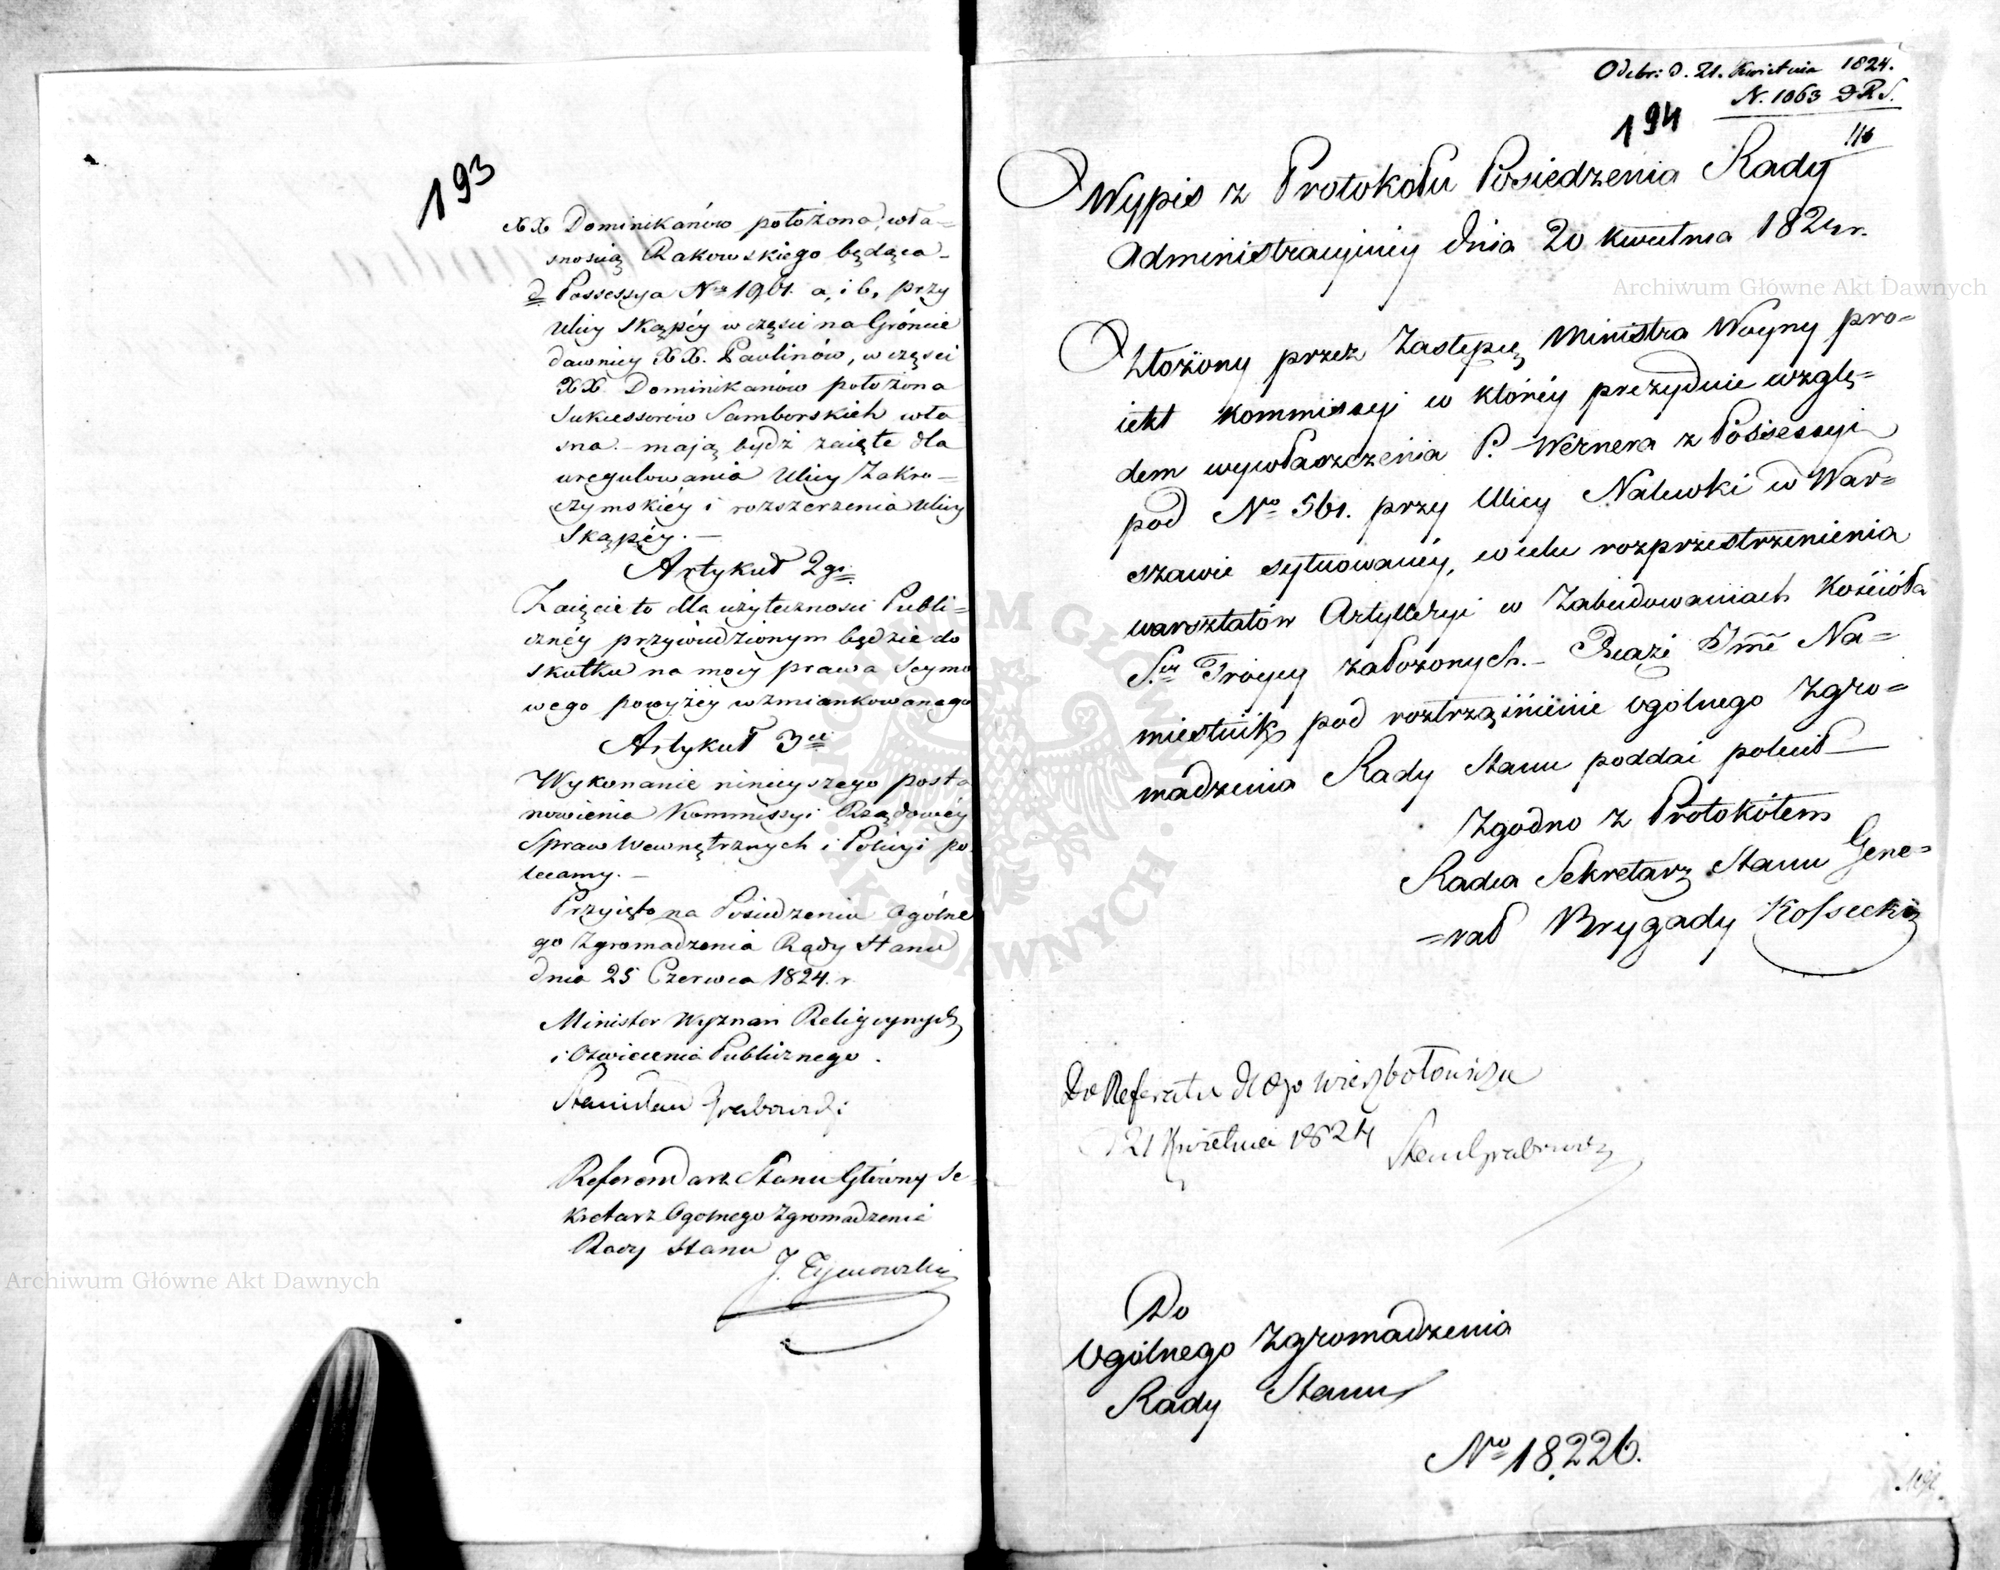 193
XX Dominikanów położona, wła-
snością Rakowskiego będąca_
d Possessya Nr 1901. a, i b, przy
Ulicy Skąpéy w części na Gróncie
dawniey XX. Paulinów, w części
XX Dominikanów położona
Sukcessorów Samborskich wła
sna. – mają bydź zaięte dla
uregulowania Ulicy Zakro-
czymskiéy i rozszerzenia Ulicy
Skąpéy. –
Artykuł 2gi.
Zaięcie to dla użyteczności Publi-
cznéy przywiedzionym będzie do
skutku na mocy prawa Seymo
wego powyżéy wzmiankowanego
Artykuł 3ci
Wykonanie ninieyszego posta
nowienia Kommissyi Rządowéy
Spraw Wewnętrznych i Policyi po
lecamy. –
Przyięto na Posiedzeniu Ogólne
go Zgromadzenia Rady Stanu
dnia 25 Czerwca 1824. r.
Minister Wyznań Religiynych
i Oświecenia Publicznego.
Stanisław Grabowski
Referendarz Stanu Główny Se-
kretarz Ogolnego Zgromadzenia
Rady Stanu
J. Tymowski
Odebr: d. 21. Kwietnia 1824.
N. 1063 DRS.
194
116
Wypis z Protokołu Posiedzenia Rady
Administracyiney dnia 20 kwietnia 1824 r.
Złożony przez Zastępcę Ministra Woyny pro=
iekt Kommissyi w któréy prezyduie wzglę=
dem wywłaszczenia P. Wernera z Possessyi
pod No 561. przy Ulicy Nalewki w War=
szawie sytuowanéy, w celu rozprzestrzenienia
warsztatów Artylleryi w Zabudowaniach Kościoła
S.tey Tróycy założonych. – Xiążę Jmć Na=
miestnik pod roztrząśnienie ogólnego Zgro=
madzenia Rady Stanu poddać polecił –
Zgodno z Protokółem
Radca Sekretarz Stanu Gene=
=rał Brygady Kossecki
Do Referatu
21 Kwietnia 1824 Stan Grabowski
Do
Ogólnego Zgromadzenia
Rady Stanu
No 18,226.
Archiwum Główne Akt Dawnych
Archiwum Główne Akt Dawnych
ARCHIWUM GŁÓWNE AKT DAWNYCH